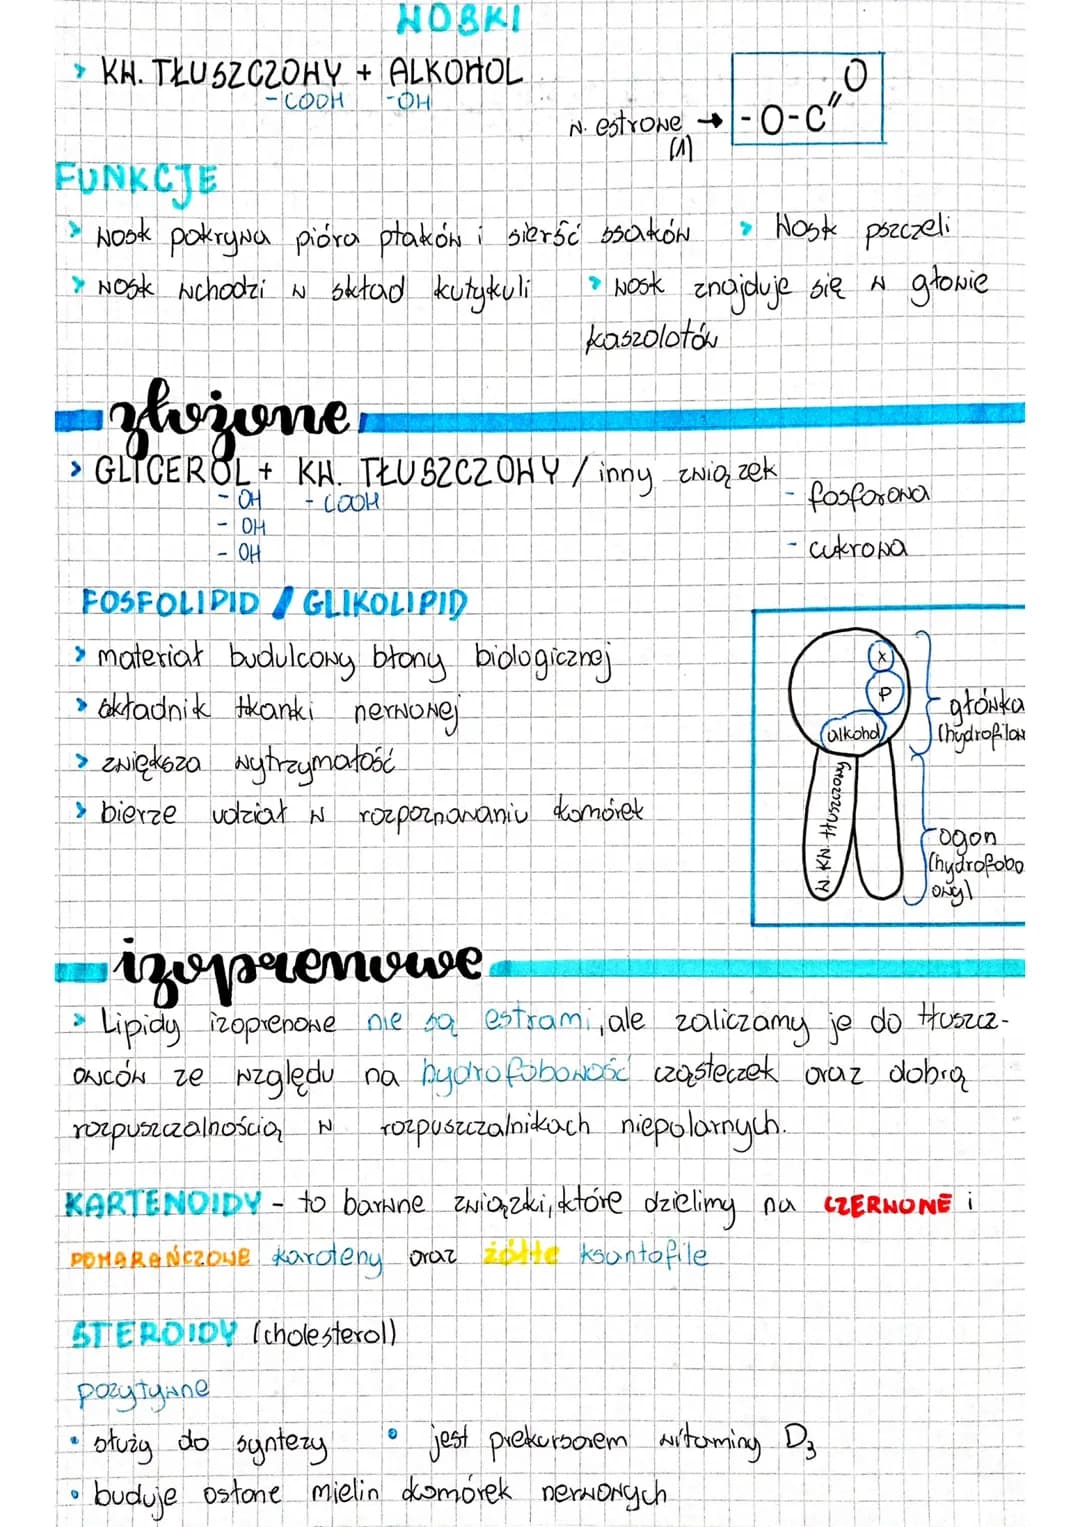 WOSKI
> KW. TŁUSZCZOWY + ALKOHOL
-COOH -OH
W. estrowe → -O-C=O
(1)
FUNKCJE
> Wosk pokrywa pióra ptaków i sierść ssaków
> Wosk pszczeli
> Wosk wchodzi w skład kutykuli
> Wosk znajduje się w głowie
kaszolotów
złożone
> GLICEROL + KW. TŁUSZCZOWY / inny związek
- OH - COOH
- OH
- OH
- fosforowa
- cukrowa
FOSFOLIPID / GLIKOLIPID
> materiał budulcowy błony biologicznej
> składnik tkanki nerwowej
> zwiększa wytrzymałość
> bierze udział w rozpoznawaniu komórek
X
P
alkohol
W. KW. tłuszczowy
główka
(hydrofilow
ogon
(hydrofobo
owy)
izoprenowe
> Lipidy izoprenowe nie są estrami, ale zaliczamy je do tłuszcz-
owców ze względu na hydrofobowość cząsteczek oraz dobrą
rozpuszczalnością w rozpuszczalnikach niepolarnych.
KARTENOIDY - to barwne związki, które dzielimy na CZERWONE i
POMARAŃCZOWE karoteny oraz żółte ksantofile
STEROIDY (cholesterol)
pozytywne
• służy do syntezy
• jest prekursorem witaminy D₃
• buduje osłone mielin komórek nerwowych